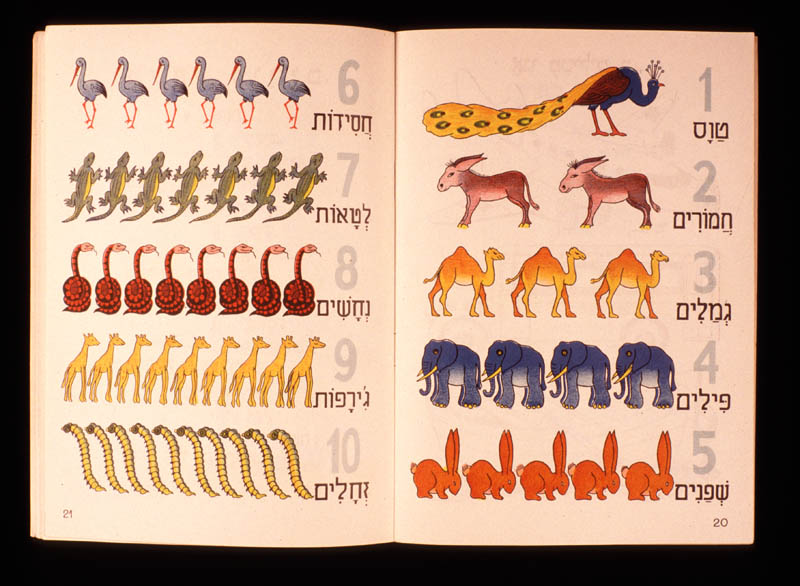 1
טַוָּס
2
חֲמוֹרִים
3
גְּמַלִּים
4
פִּילִים
5
שְׁפַנִּים
20
6
חֲסִידוֹת
7
לְטָאוֹת
8
נְחָשִׁים
9
גִּ'ירָפוֹת
10
זְחָלִים
21